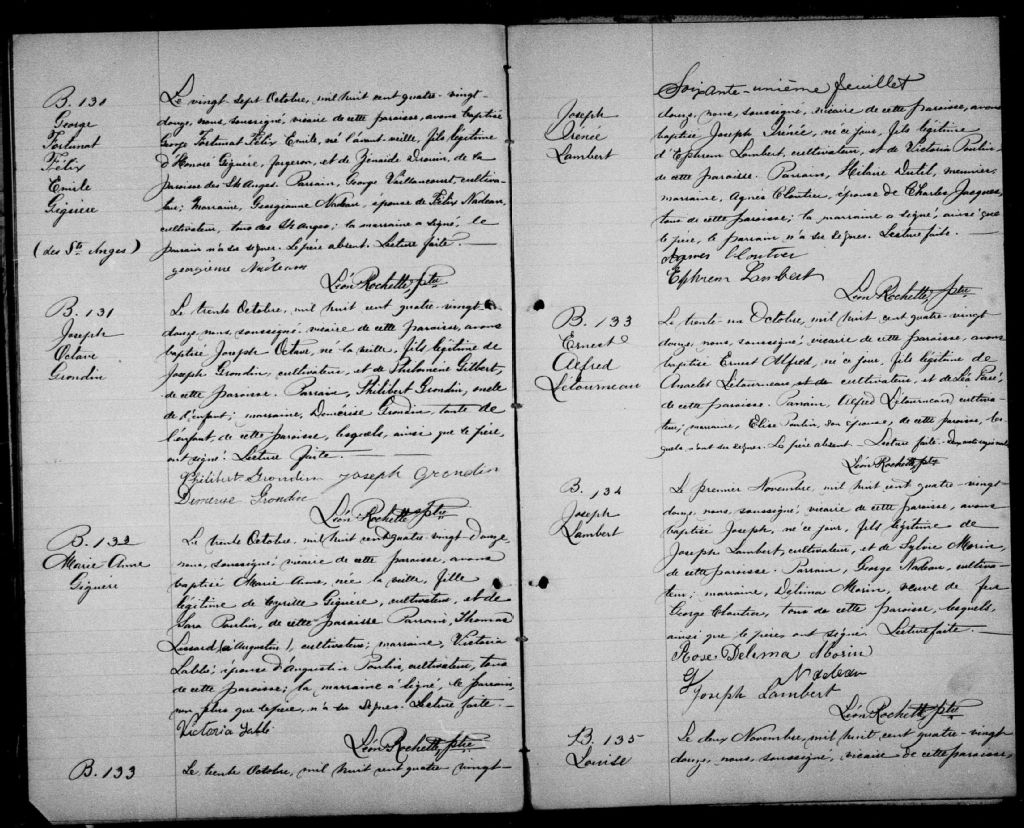 B. 130
George
Fortunat
Félix
Emile
Giguère
(des Sts Anges)
Le vingt sept Octobre, mil huit cent quatre-vingt-
douze, nous, soussigné, vicaire de cette paroisse, avons baptisé
George Fortunat Félix Emile, né l'avant-veille, fils légitime
d'Honoré Giguère, forgeron, et de Zénaïde Drouin, de la
paroisse des Sts Anges. Parrain, George Vaillancourt, cultiva-
teur; Marraine, Georgianne Nadeau, épouse de Félix Nadeau,
cultivateur, tous des Sts Anges; la marraine a signé, le
parrain n'a su signer. Le père absent. Lecture faite.
georgienne Nadeau
Léon Rochette, ptre
B. 131
Joseph
Octave
Grondin
Le trente Octobre, mil huit cent quatre-vingt-
douze, nous, soussigné vicaire de cette paroisse, avons
baptisé Joseph Octave, né la veille, fils légitime de
Joseph Grondin, cultivateur, et de Philomène Gilbert,
de cette paroisse. Parrain, Philibert Grondin, oncle
de l'enfant; marraine, Démérise Grondin, tante de
l'enfant, de cette paroisse, lesquels, ainsi que le père,
ont signé. Lecture faite.
Philibert Grondin Joseph Grondin
Démerise Grondin
Léon Rochette, ptre
B. 132
Marie Anne
Giguère
Le trente Octobre, mil huit cent quatre vingt-douze,
nous, soussigné vicaire de cette paroisse, avons
baptisé Marie Anne, née la veille, fille
légitime de Cyrille Giguère, cultivateur, et de
Sara Poulin, de cette paroisse Parrain, Thomas
Lessard (à Augustin), cultivateur; marraine, Victoria
Labbé, épouse d'Augustin Poulin, cultivateur, tous
de cette paroisse; la marraine a signé, le parrain,
non plus que le père, n'a su signer. Lecture faite.
Victoria Labbé
Léon Rochette, ptre
B. 133
Le trente Octobre, mil huit cent quatre-vingt-
Soixante-unième feuillet
Joseph
Irénée
Lambert
douze, nous, soussigné, vicaire de cette paroisse, avons
baptisé Joseph Irénée, né ce jour, fils légitime
d'Ephrem Lambert, cultivateur, et de Victoria Poulin,
de cette paroisse. Parrain, Hilaire Dutil, meunier,
marraine, Agnès Cloutier, épouse de Charles Jacques,
tous de cette paroisse; la marraine a signé, ainsi que
le père, le parrain n'a su signer. Lecture faite.
Agnes Cloutier
Ephrem Lambert
Léon Rochette, ptre
B. 133
Ernest
Alfred
Létourneau
Le trente-un Octobre, mil huit cent quatre-vingt
douze, nous, soussigné, vicaire de cette paroisse, avons
baptisé Ernest Alfred, né ce jour, fils légitime de
Anaclet Létourneau et de cultivateur, et de Léa Paré,
de cette paroisse. Parrain, Alfred Létourneau cultiva-
teur; marraine, Elise Poulin, son épouse, de cette paroisse, les-
quels n'ont su signer. Le père absent. Lecture faite.
Léon Rochette, ptre
B. 134
Joseph
Lambert
Le premier Novembre, mil huit cent quatre-vingt
douze, nous, soussigné, vicaire de cette paroisse, avons
baptisé Joseph, né ce jour, fils légitime de
Joseph Lambert, cultivateur, et de Sylvie Morin,
de cette paroisse. Parrain, George Nadeau, cultiva-
teur; marraine, Délima Morin, veuve de feu
George Cloutier, tous de cette paroisse, lesquels,
ainsi que le père, ont signé. Lecture faite.
Rose Delima Morin
G Nadeau
Joseph Lambert
Léon Rochette, ptre
B. 135
Louise
Le deux Novembre, mil huit cent quatre-vingt-
douze, nous, soussigné, vicaire de cette paroisse,